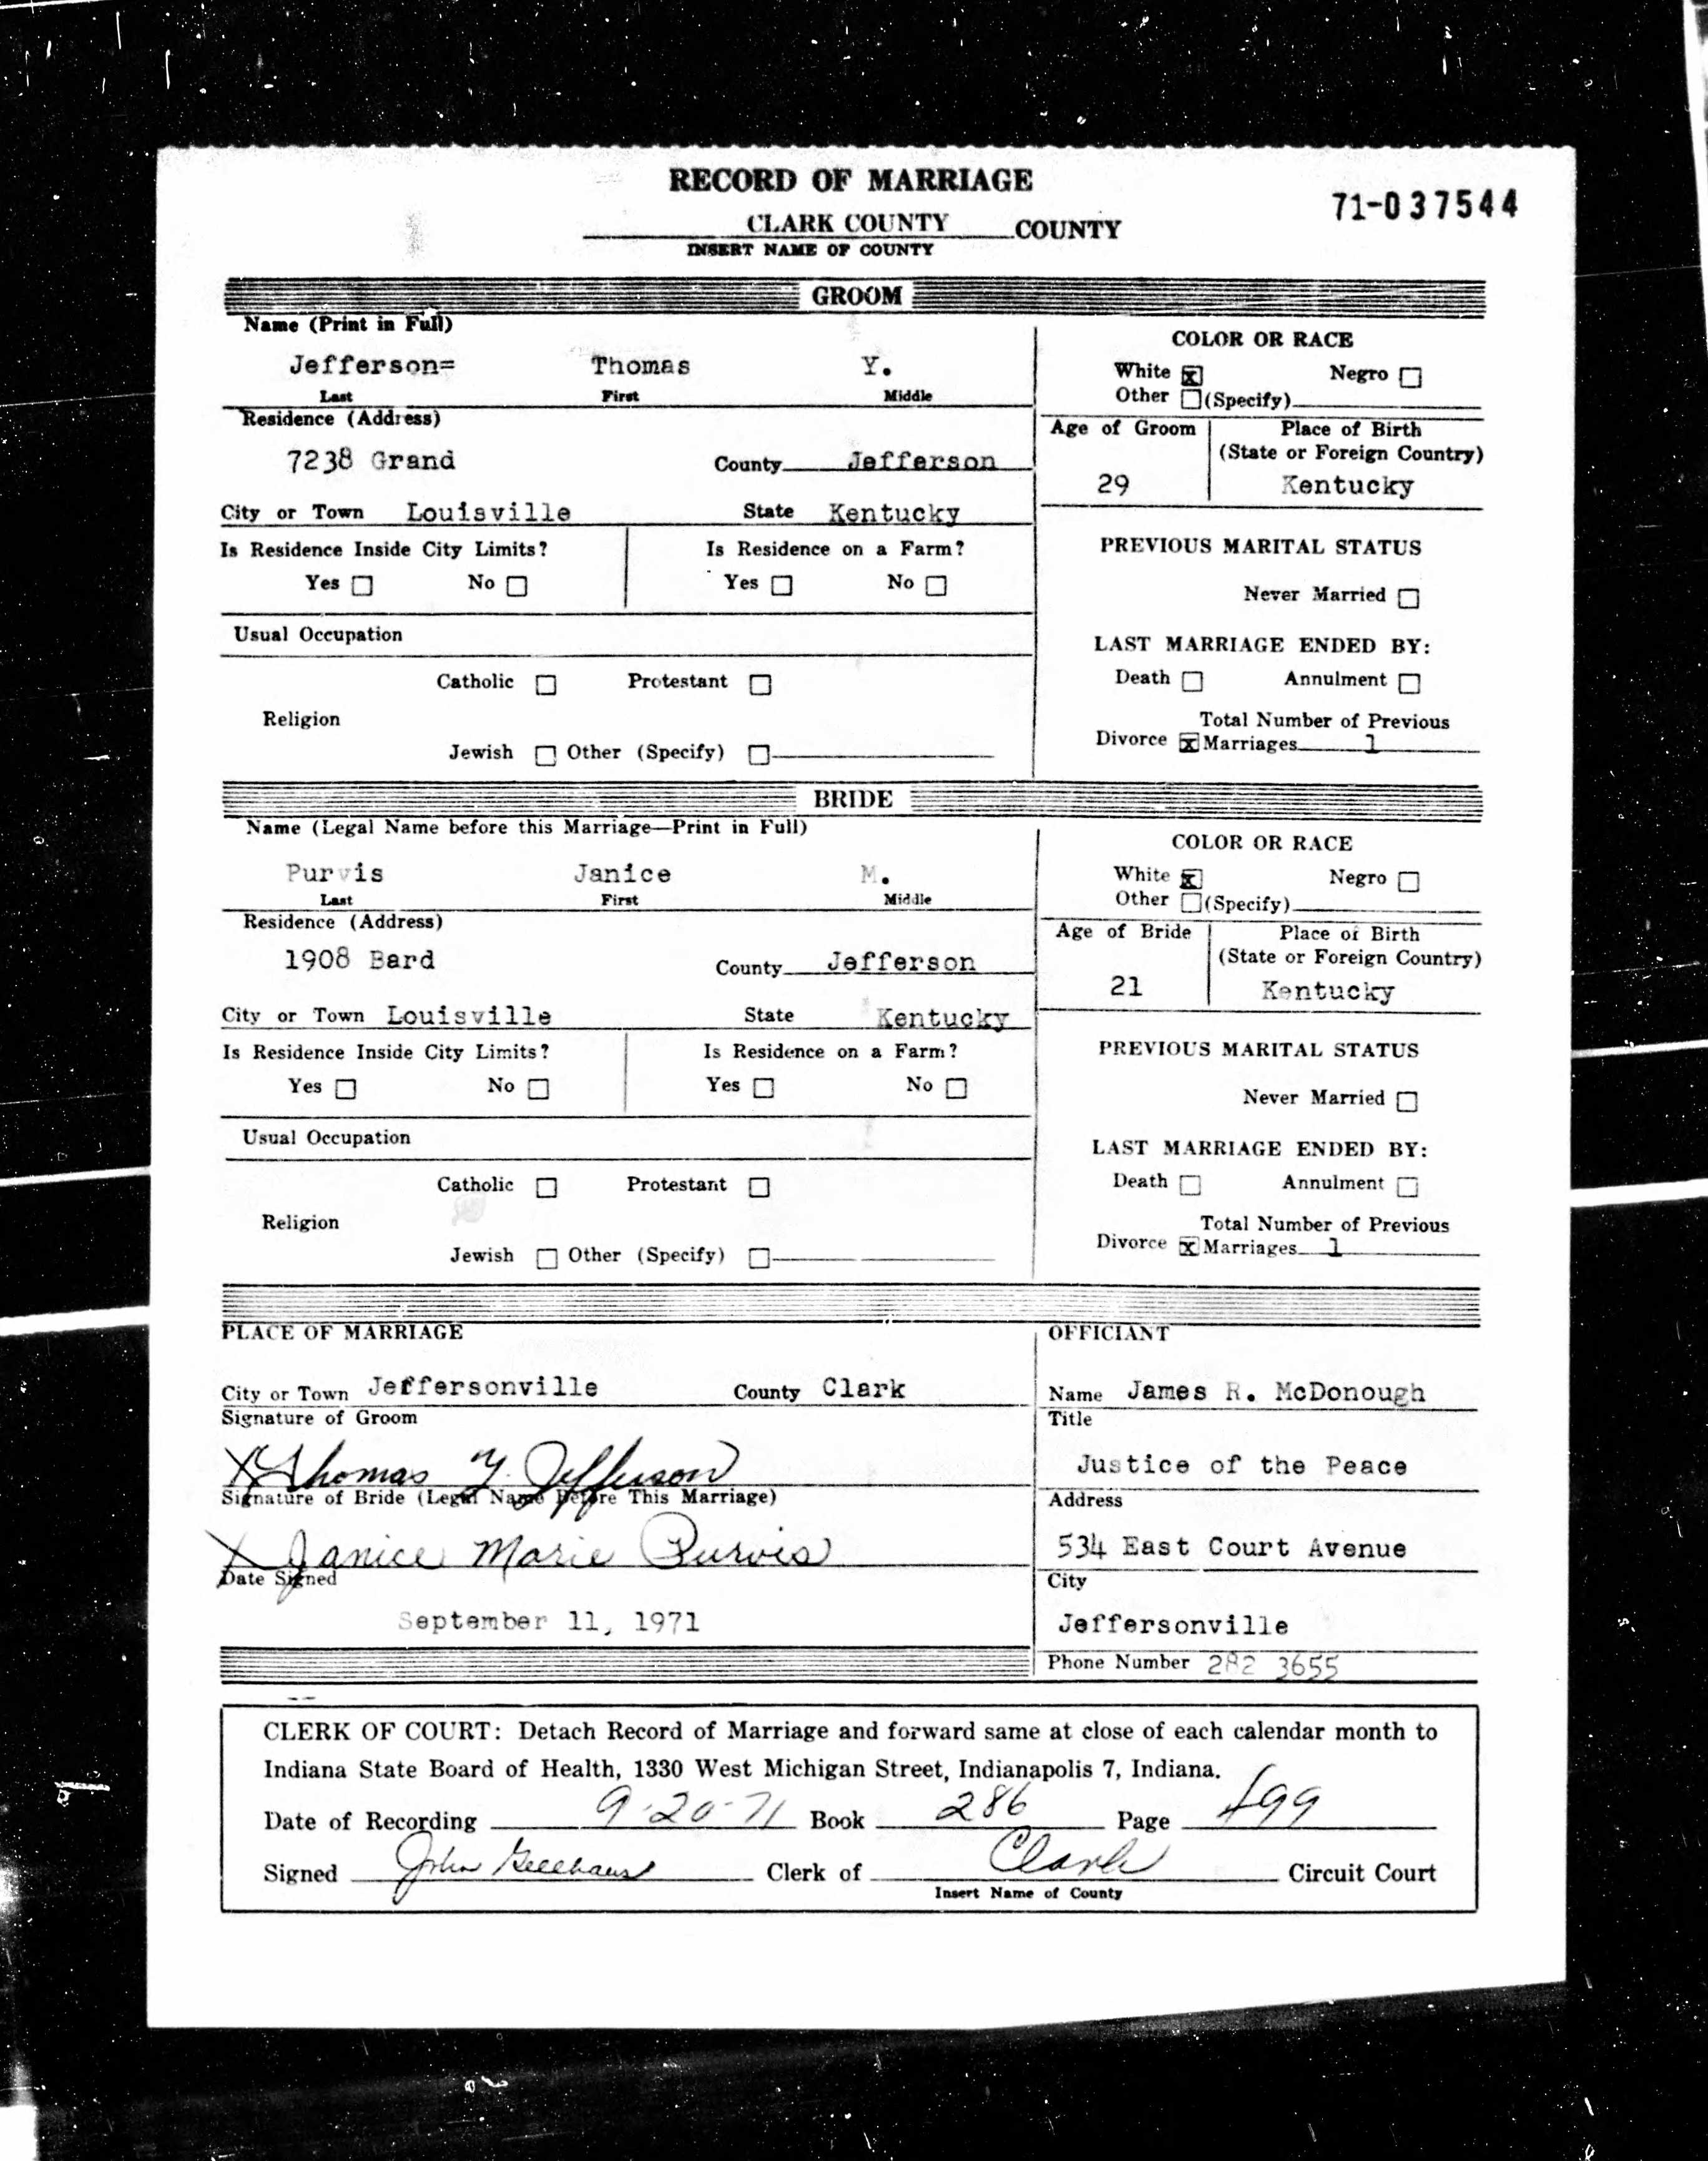 RECORD OF MARRIAGE
71-037544
CLARK COUNTY COUNTY
INSERT NAME OF COUNTY
GROOM
Name (Print in Full)
Jefferson= Thomas Y.
Last First Middle
Residence (Address)
7238 Grand County Jefferson
City or Town Louisville State Kentucky
Is Residence Inside City Limits? Is Residence on a Farm?
Yes No Yes No
Usual Occupation
Catholic Protestant
Religion
Jewish Other (Specify)
COLOR OR RACE
White x Negro
Other (Specify)
Age of Groom Place of Birth
(State or Foreign Country)
29 Kentucky
PREVIOUS MARITAL STATUS
Never Married
LAST MARRIAGE ENDED BY:
Death Annulment
Total Number of Previous
Divorce x Marriages 1
BRIDE
Name (Legal Name before this Marriage—Print in Full)
Purvis Janice M.
Last First Middle
Residence (Address)
1908 Bard County Jefferson
City or Town Louisville State Kentucky
Is Residence Inside City Limits? Is Residence on a Farm?
Yes No Yes No
Usual Occupation
Catholic Protestant
Religion
Jewish Other (Specify)
COLOR OR RACE
White x Negro
Other (Specify)
Age of Bride Place of Birth
(State or Foreign Country)
21 Kentucky
PREVIOUS MARITAL STATUS
Never Married
LAST MARRIAGE ENDED BY:
Death Annulment
Total Number of Previous
Divorce x Marriages 1
PLACE OF MARRIAGE
City or Town Jeffersonville County Clark
Signature of Groom
X Thomas Y. Jefferson
Signature of Bride (Legal Name Before This Marriage)
X Janice Marie Purvis
Date Signed
September 11, 1971
OFFICIANT
Name James R. McDonough
Title
Justice of the Peace
Address
534 East Court Avenue
City
Jeffersonville
Phone Number 282 3655
CLERK OF COURT: Detach Record of Marriage and forward same at close of each calendar month to
Indiana State Board of Health, 1330 West Michigan Street, Indianapolis 7, Indiana.
Date of Recording 9-20-71 Book 286 Page 499
Signed John Clerk of Clark Circuit Court
Insert Name of County